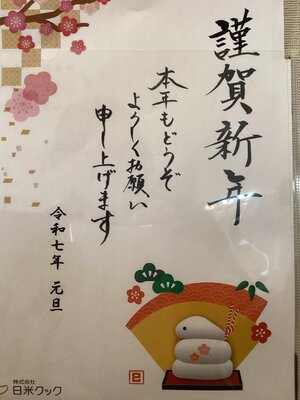 謹賀新年
本年もどうぞ
よろしくお願い
申し上げます
令和七年 元旦
巳
株式会社
日米クック